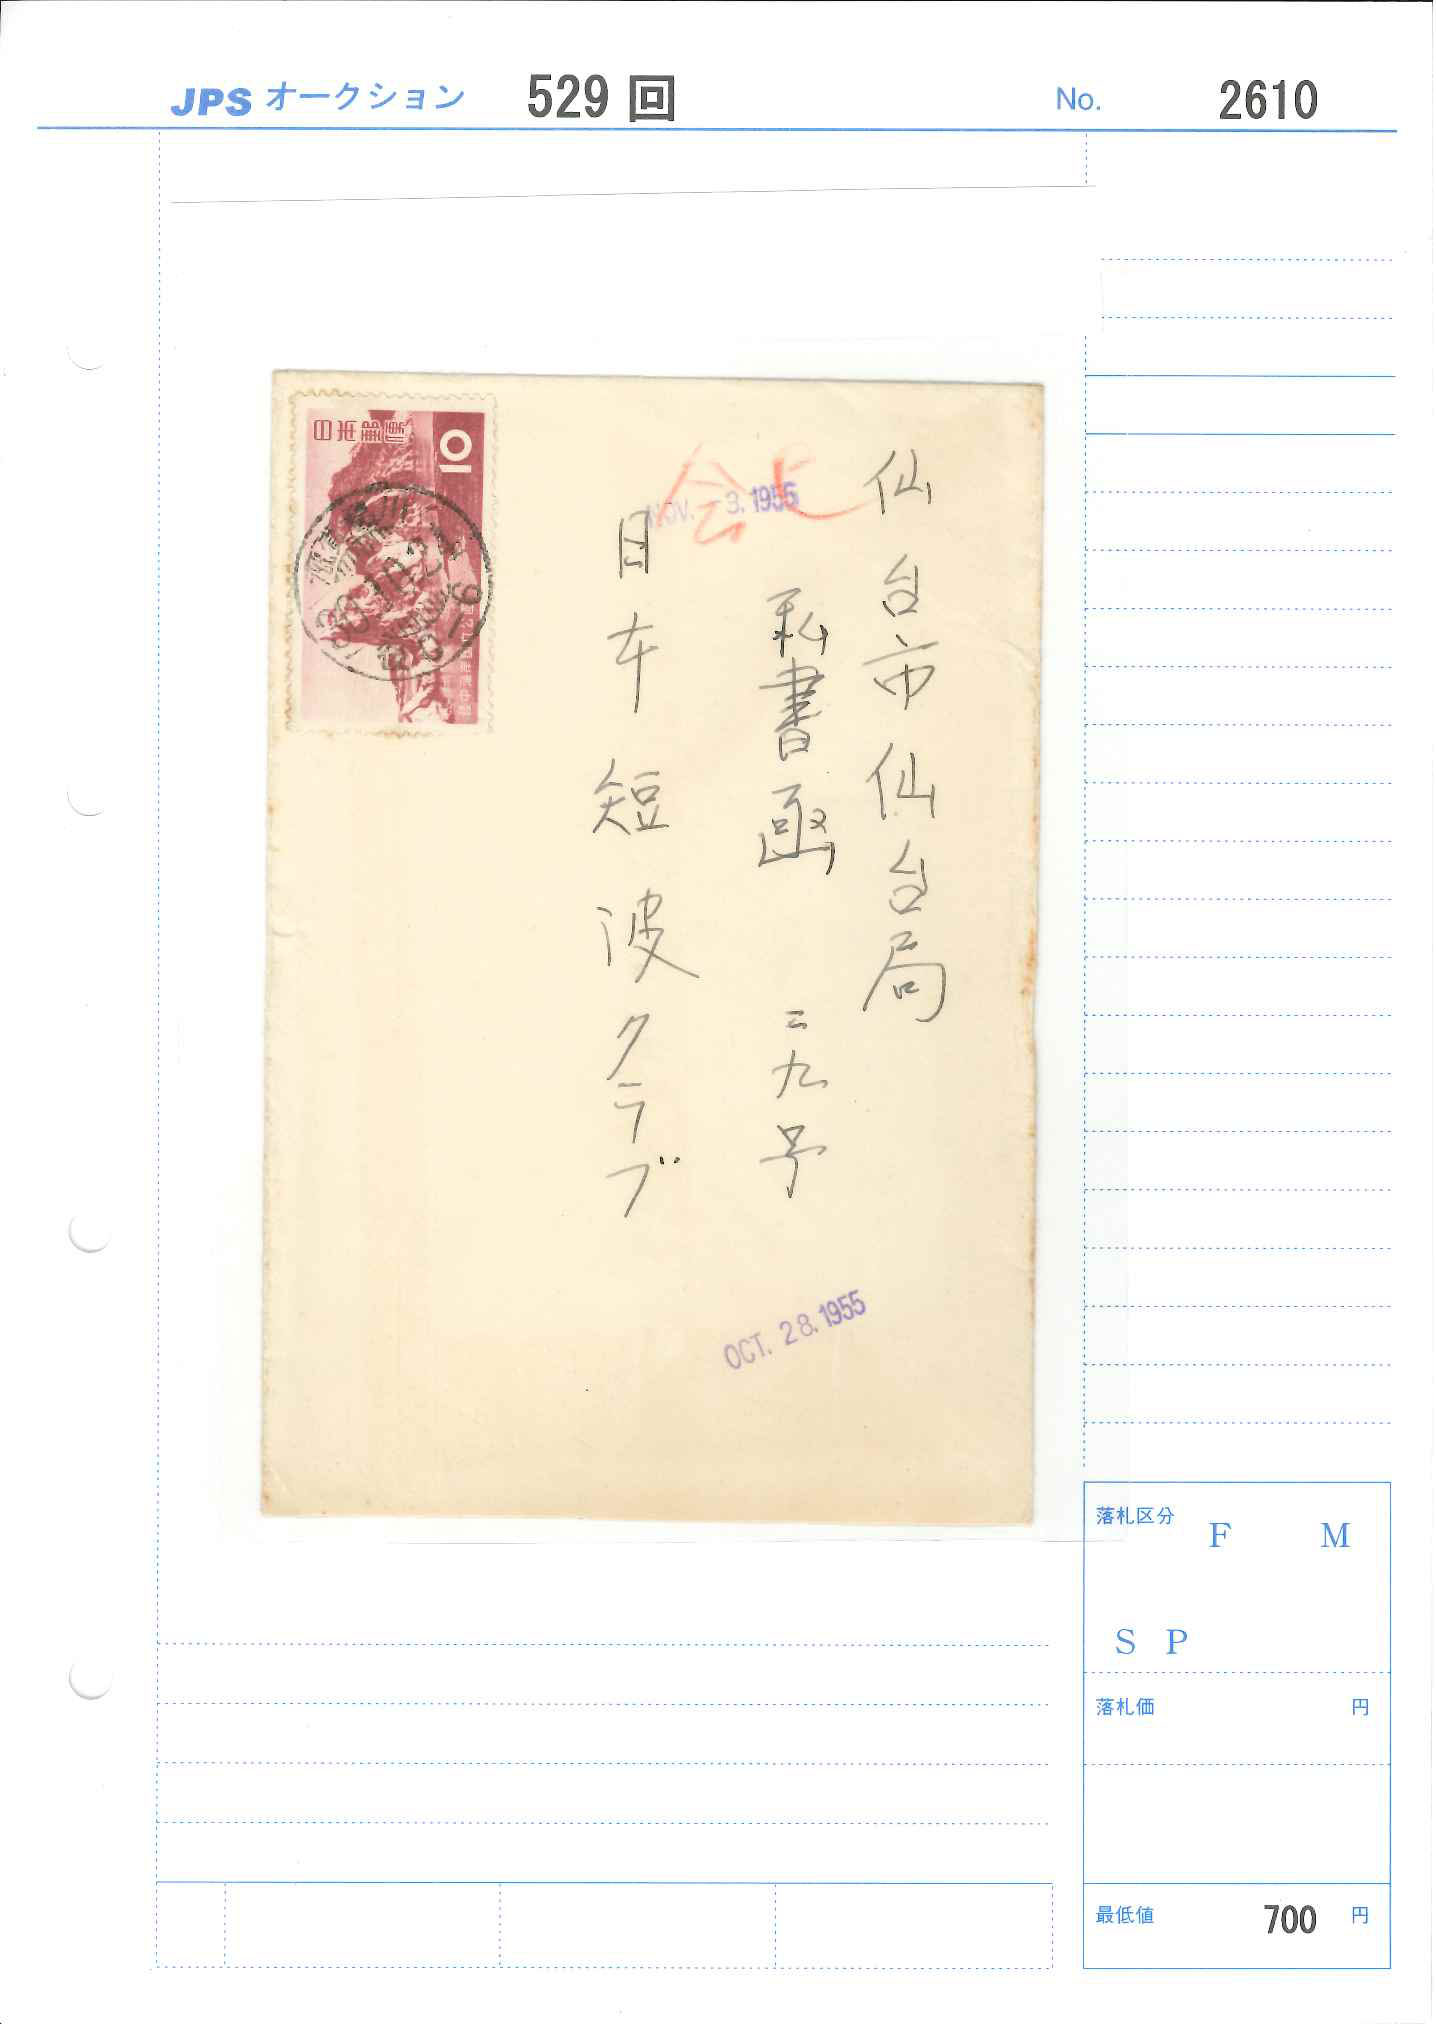 JPS オークション 529 回 No. 2610
日本郵便
10
仙台市仙台局
私書函 二九号
日本短波クラブ
会
NOV. -3. 1955
OCT. 28. 1955
落札区分 F M
S P
落札価 円
最低値 700 円